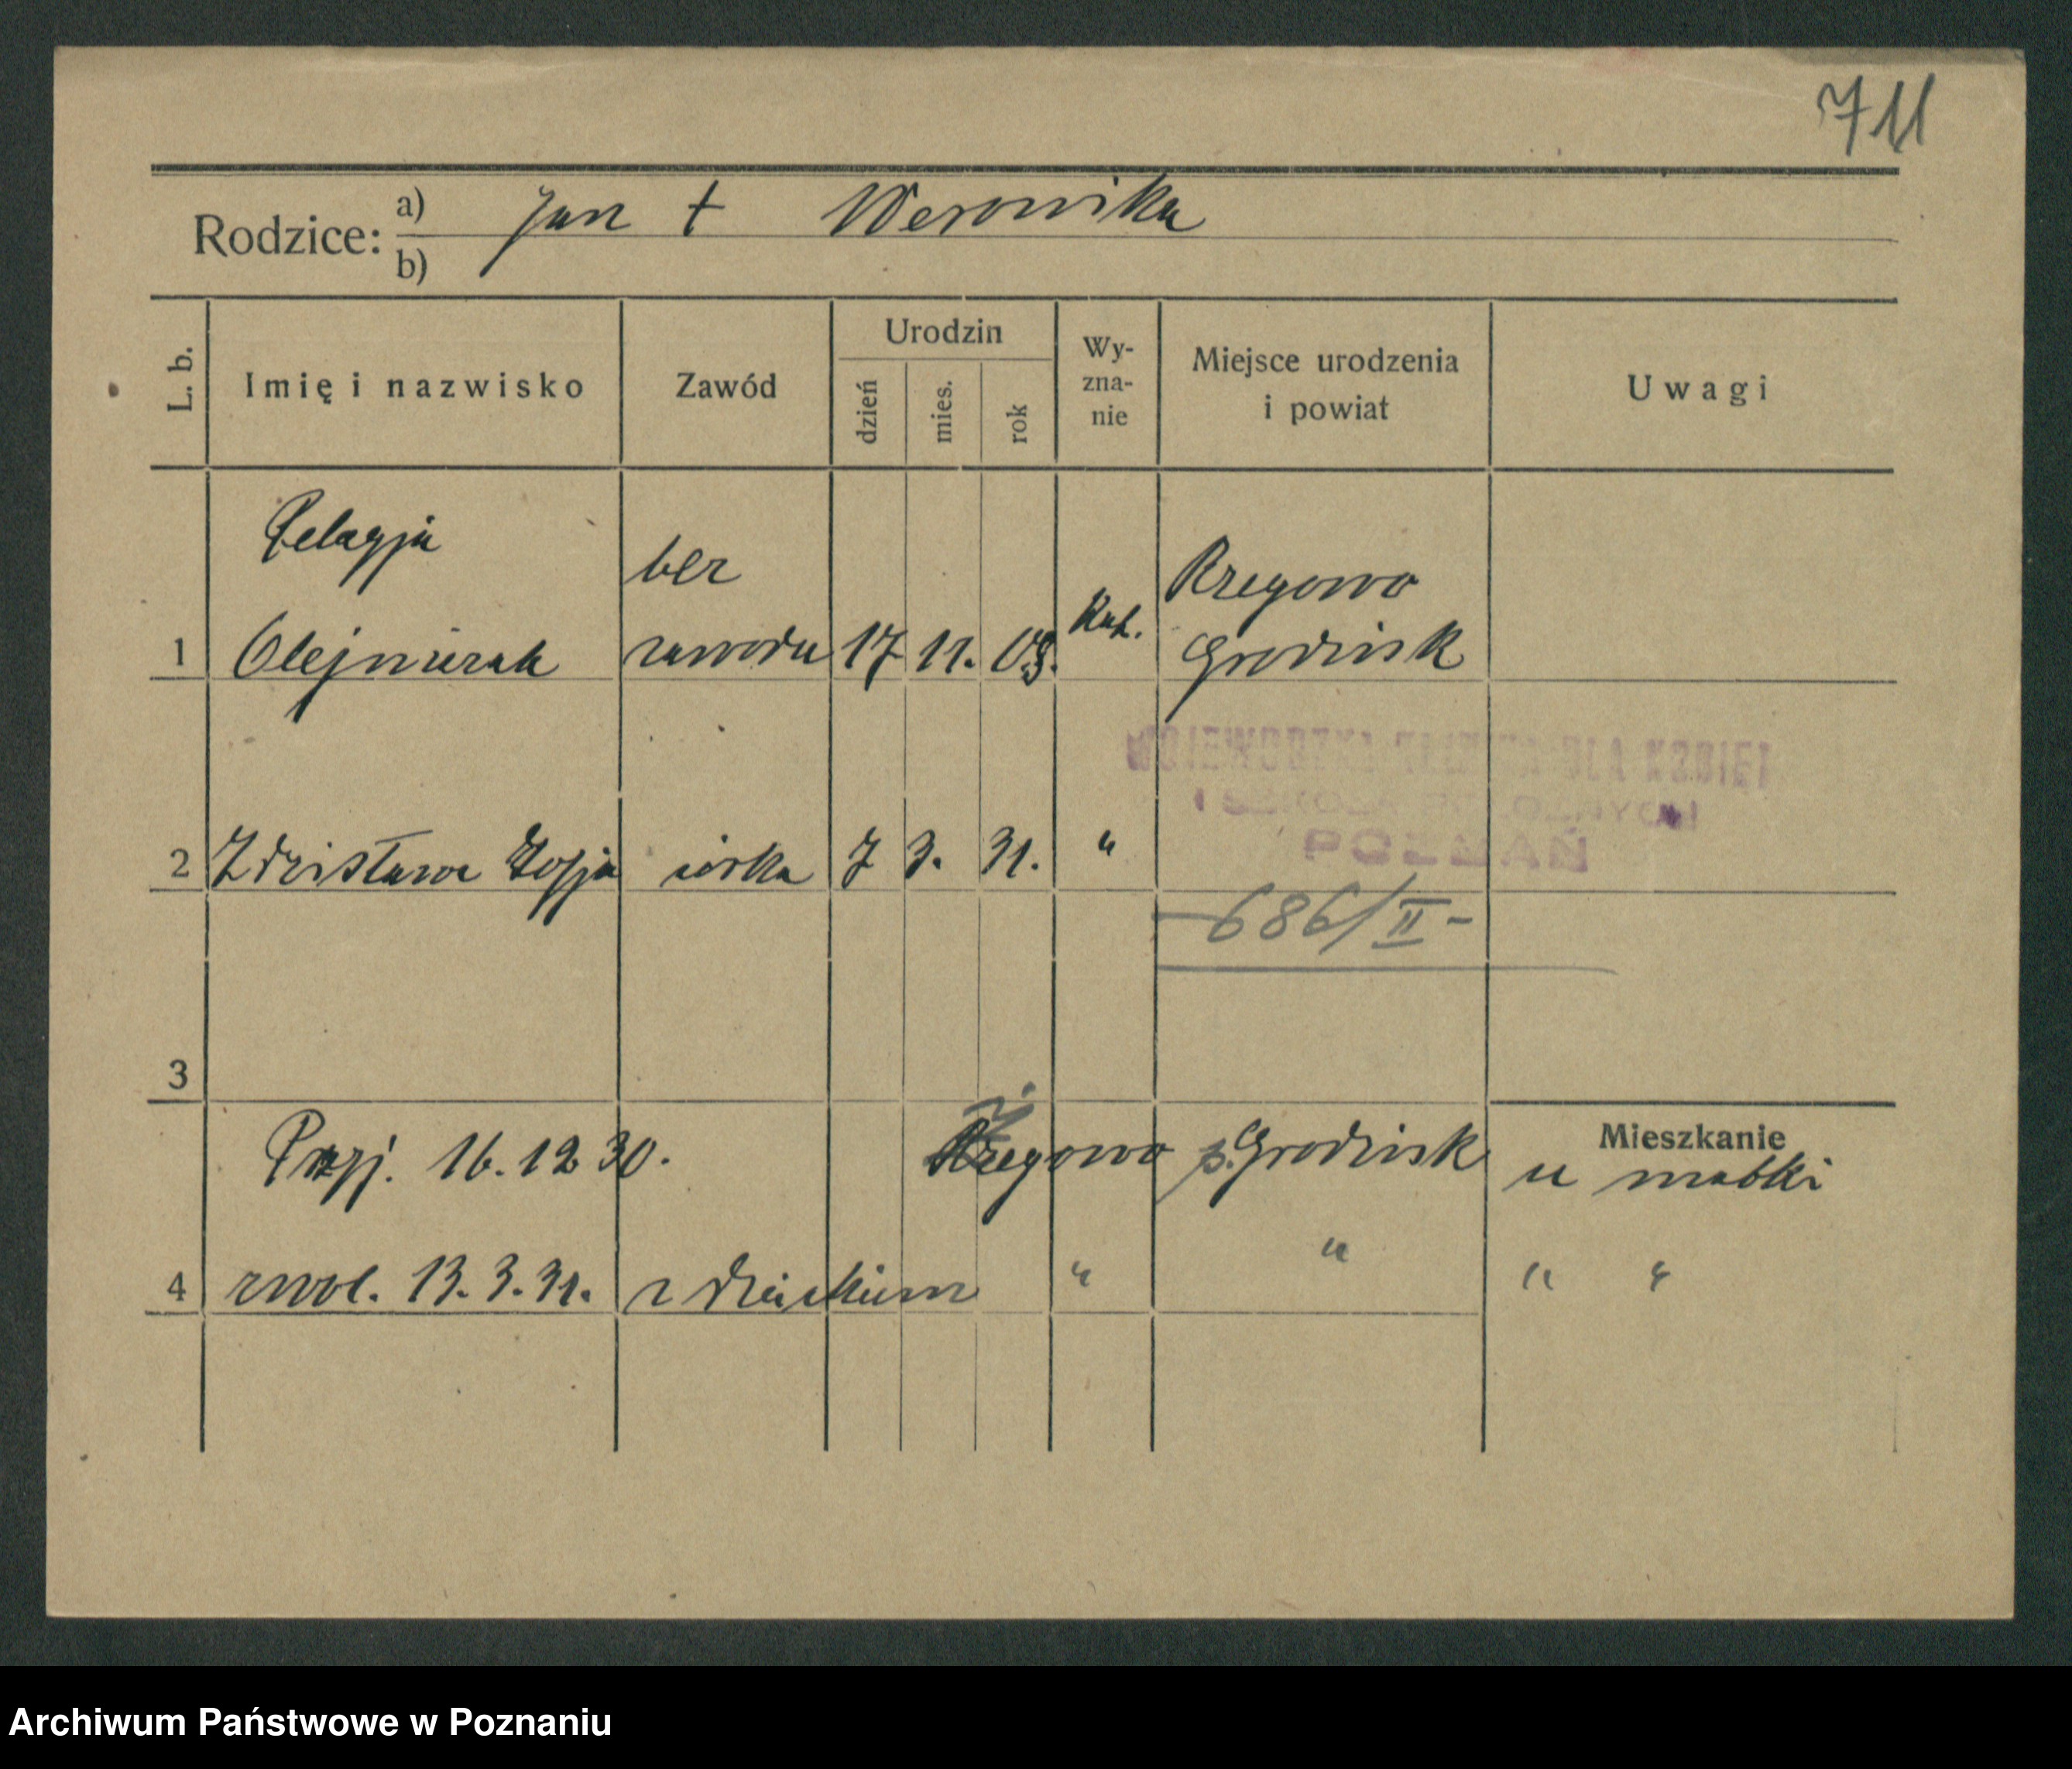 711
Rodzice: a) Jan + Weronika
b)
L. b. Imię i nazwisko Zawód Urodzin dzień mies. rok Wy-zna-nie Miejsce urodzenia i powiat Uwagi
Pelagja bez Rzegowo
1 Olejniczak zawodu 17 11. 09. Kat. Grodzisk
WOJEWÓDZKA KLINIKA DLA KOBIET
I SZKOŁA POŁOŻNYCH
POZNAŃ
2 Zdzisława Zofja córka 7 3. 31. "
686/II-
3
Przyj. 16.12 30. Rzegowo p. Grodzisk Mieszkanie
u matki
4 zwol. 13.3.31. z dzieckiem " " " "
Archiwum Państwowe w Poznaniu